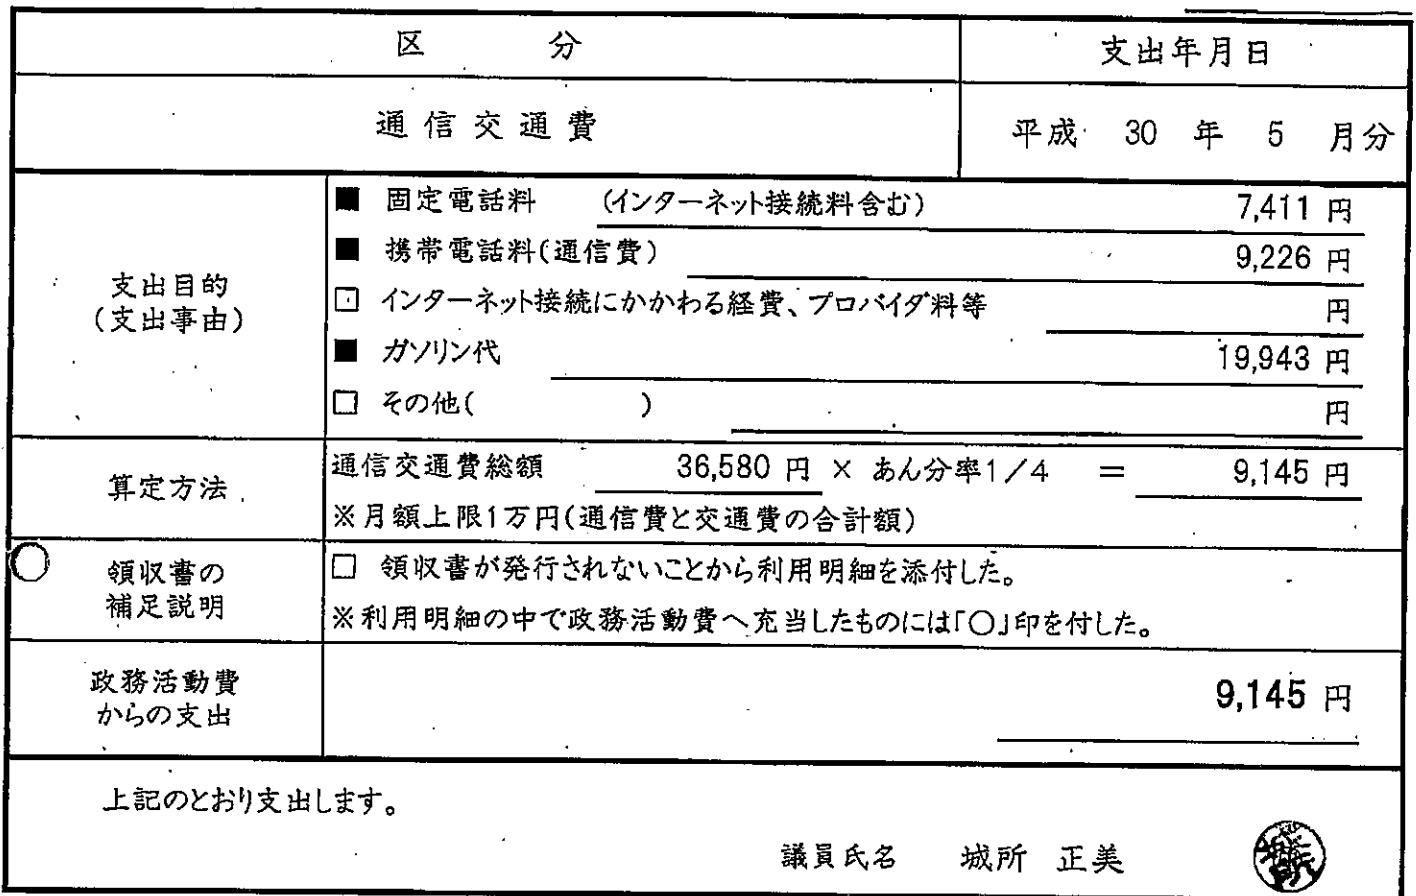 区 分 支出年月日
通信交通費 平成 30 年 5 月分
支出目的
(支出事由)
■ 固定電話料 (インターネット接続料含む) 7,411 円
■ 携帯電話料(通信費) 9,226 円
□ インターネット接続にかかわる経費、プロバイダ料等 円
■ ガソリン代 19,943 円
□ その他( ) 円
算定方法
通信交通費総額 36,580 円 × あん分率1/4 = 9,145 円
※月額上限1万円(通信費と交通費の合計額)
領収書の
補足説明
□ 領収書が発行されないことから利用明細を添付した。
※利用明細の中で政務活動費へ充当したものには「○」印を付した。
政務活動費
からの支出
9,145 円
上記のとおり支出します。
議員氏名 城所 正美